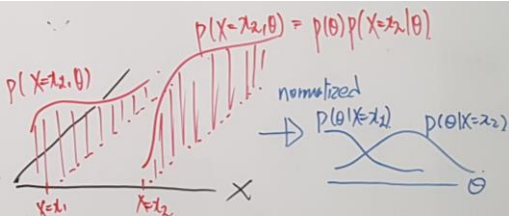 p(X=x₂,θ) = p(θ)p(X=x₂|θ)
p(X=x₁,θ)
normalized
p(θ|X=x₁)
p(θ|X=x₂)
X
θ
X=x₁
X=x₂